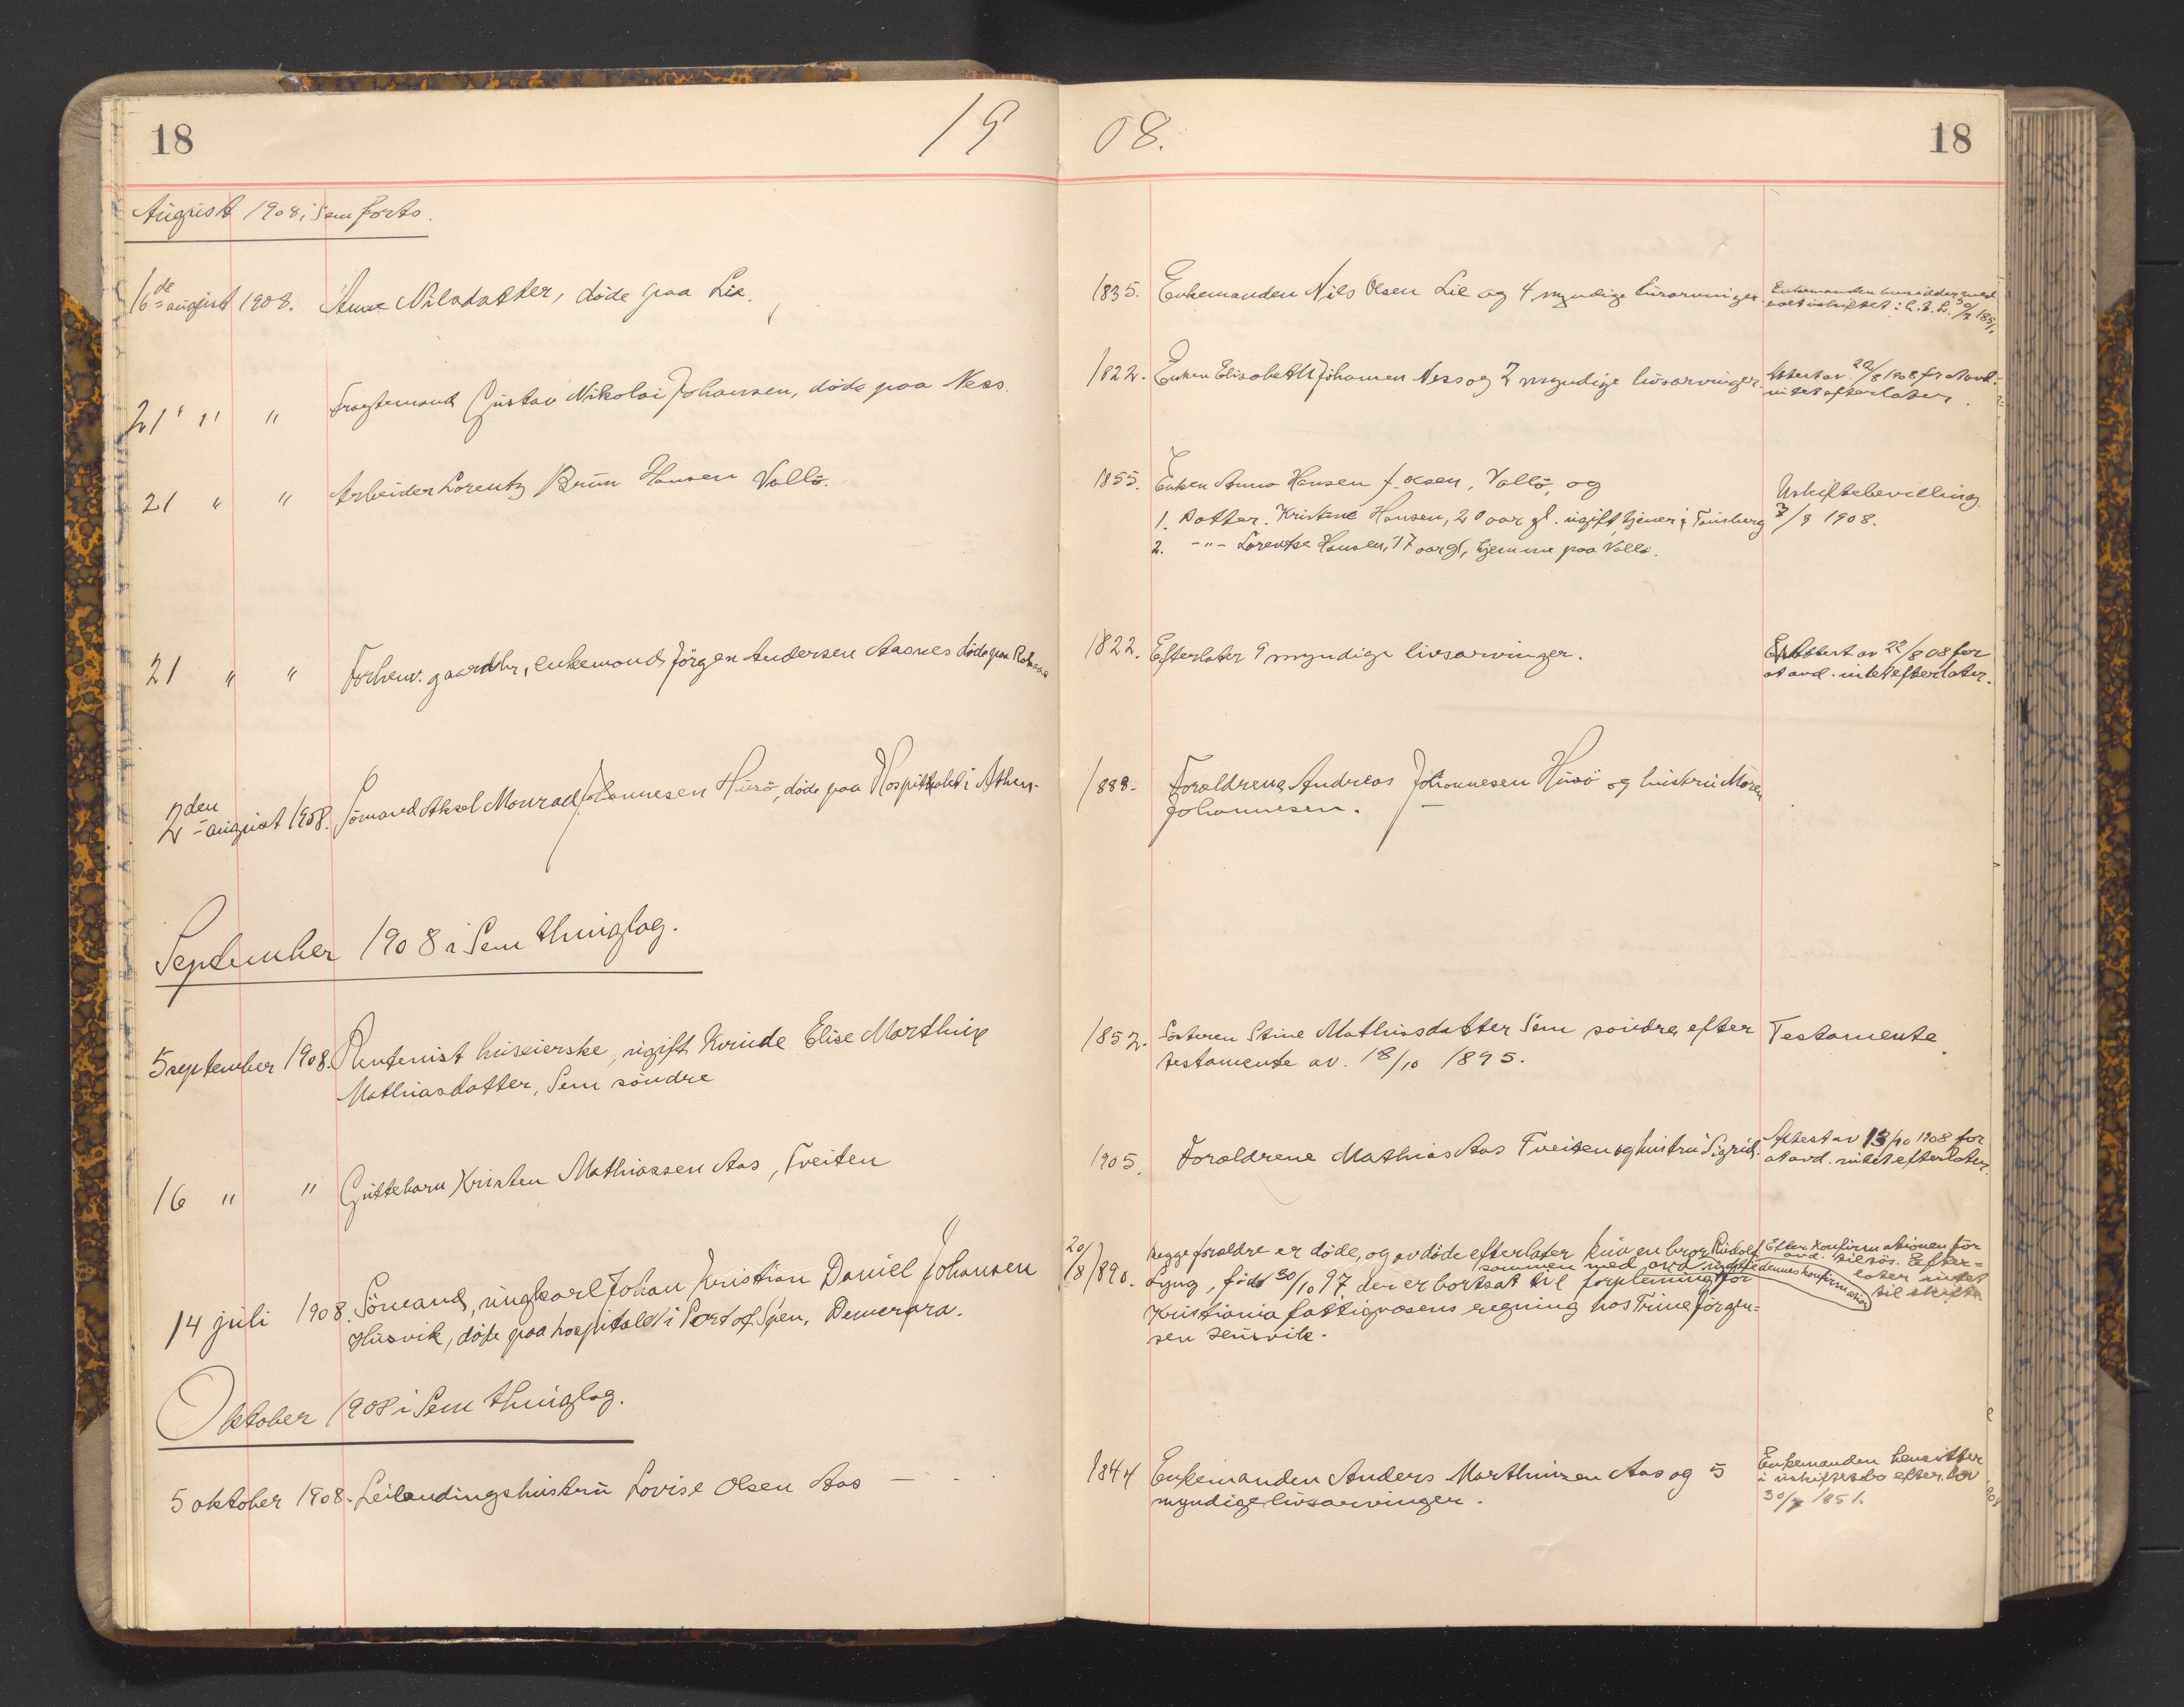 18
19
08.
18
August 1908 i Sem forts.
16de august 1908. Anne Nilsdatter, døde paa Lie.
1835. Enkemanden Nils Olsen Lie og 4 myndige livsarvinger.
Enkemanden hensidder med
boet uskiftet i h. t. L. 30/7 1851.
21 " " " Fragtemand Gustav Nikolai Johansen, døde paa Ness.
1822. Enken Elisabeth Johansen Ness og 7 myndige livsarvinger.
Attest av 22/8 1908 for at avd.
intet efterlater.
21 " " Arbeider Lorentz Bruun Hansen Vallö.
1855. Enken Anna Hansen f. Olsen, Vallö, og
1. Datter. Kristine Hansen, 20 aar gl. ugift, tjener i Tönsberg
2. -"- Lorentse Hansen, 17 aar gl, hjemme paa Vallö.
Uskiftebevilling
3/9 1908.
21 " " Forhenv. gaardbr, enkemand Jörgen Andersen Aasnes döde paa
1822. Efterlater 9 myndige livsarvinger.
Attest av 22/8 08 for
at avd. intet efterlater.
2den august 1908. Sömand Aksel Monrad Johannesen Husö, döde paa Hospitalet i Athen.
1888. Foraldrene Andreas Johannesen Husö og hustru Maren
Johannesen.
September 1908 i Sem thinglag.
5 september 1908. Rentenist huseierske, ugift Kvinde Elise Marthine
Mathiasdatter, Sem söndre
1852. Sösteren Stine Mathiasdatter Sem söndre efter
testamente av. 18/10 1895.
Testamente
16 " " Guttebarn Kristen Mathiassen Aas, Tveiten
1905. Foraldrene Mathias Aas Tveiten og hustru Sigrid.
Attest av 13/10 1908 for
at avd. intet efterlater.
14 juli 1908. Sömand, ungkarl Johan Kristian Daniel Johansen
Husvik, döde paa hospitalet i Port of Spen, Demerara.
20/8 1890. begge foraldre er döde, og avdöde efterlater kun en bror Rudolf
Lyng, född 30/10 97, der er bortsat til forpleining for
Kristiania fattigvæsens regning hos Trine Jörgen-
sen Husvik.
Efter Konfirmationen for
avd. tilsös. Efter-
later intet
til skifte
Oktober 1908 i Sem thinglag.
5 oktober 1908. Leilendingshustru Lovise Olsen Aas —
1844 Enkemanden Anders Marthinsen Aas og 5
myndige livsarvinger.
Enkemanden hensitter
i uskiftet bo efter lov
30/7 1851.